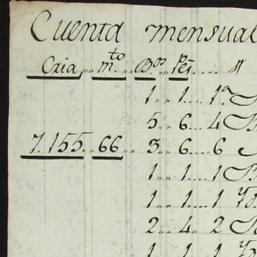 Cuenta mensual
Cria..m.to..Bo.s Pe.s....
1..1...1
5..6...4
7.155..66..3..6...6
1..1...1
1..1...1
2..4..2
1..1..1